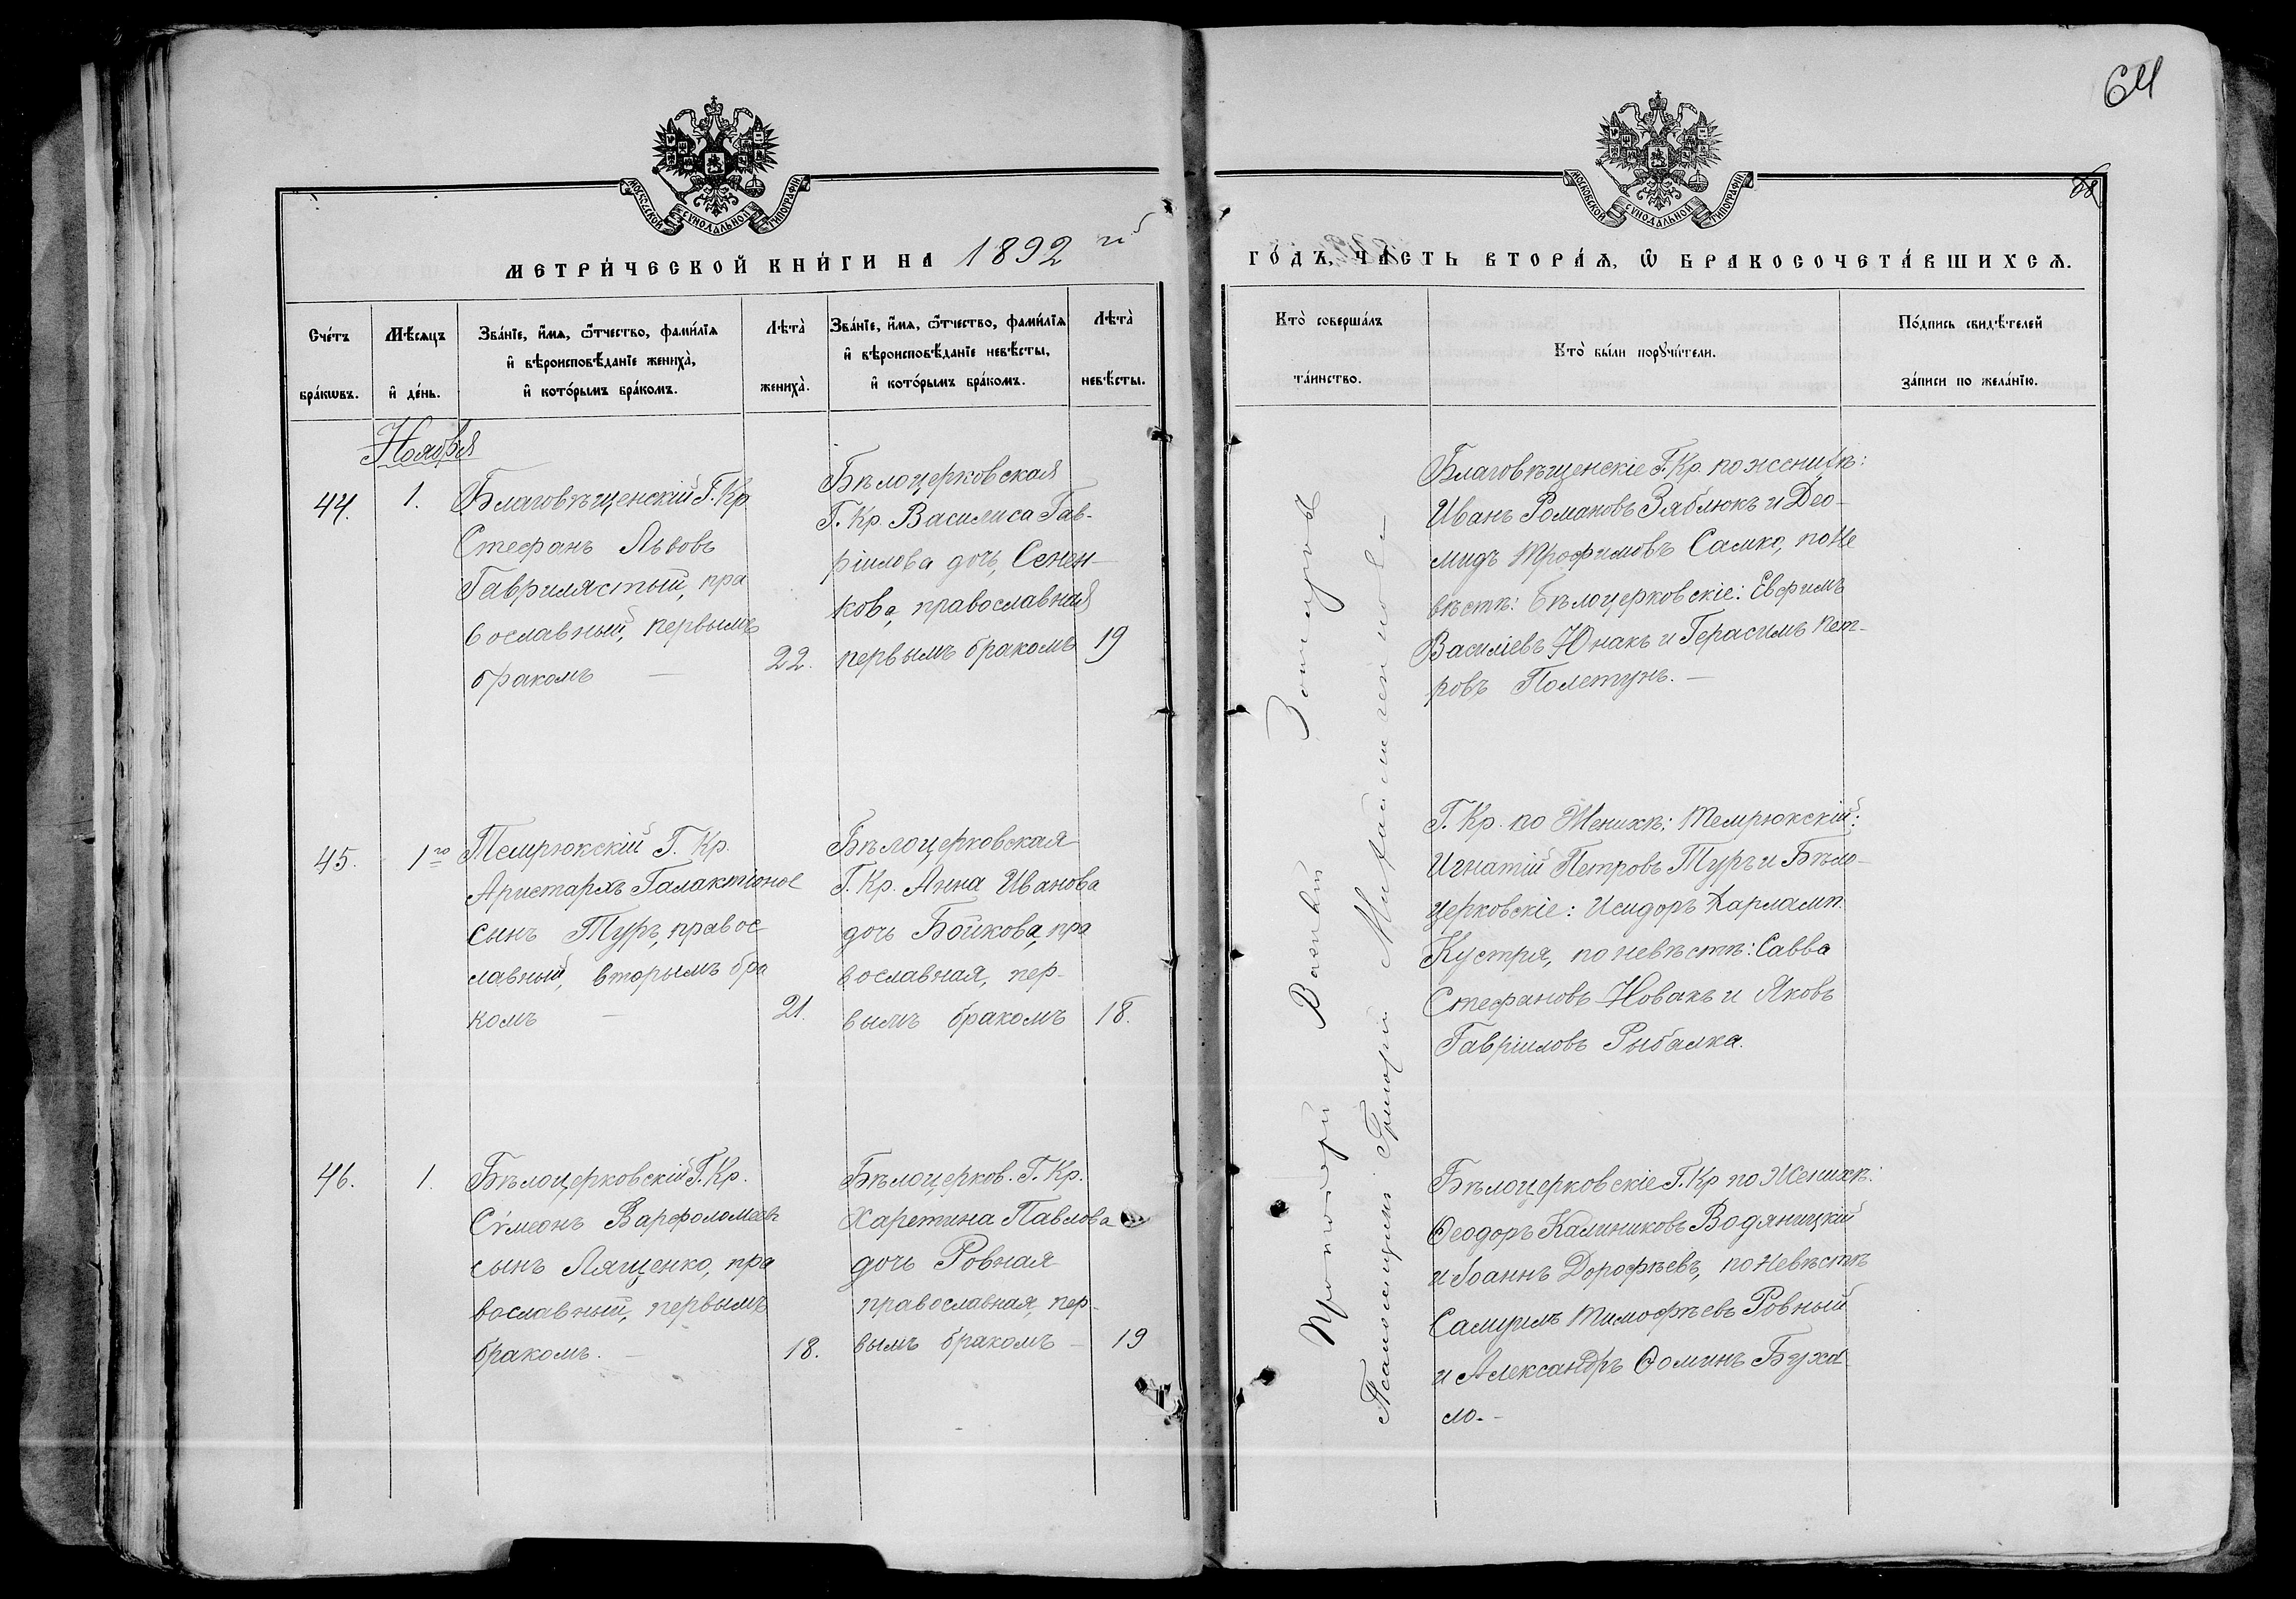 64
88
МОСКОВСКОЙ СѴНОДАЛЬНОЙ ТИПОГРАФІИ
МОСКОВСКОЙ СѴНОДАЛЬНОЙ ТИПОГРАФІИ
МЕТРИ́ЧЕСКОЙ КНИ́ГИ НА 1892 й
ГО́ДЪ, ЧА́СТЬ ВТОРА́Ѧ, Ѽ БРАКОСОЧЕТА́ВШИХСѦ.
Сче́тъ
бра́кѡвъ.
Мѣ́сѧцъ
и҆ де́нь.
Зва́нїе, и҆́мѧ, ѻ҆́тчество, фами́лїѧ
и҆ вѣроисповѣ́данїе жениха̀,
и҆ кото́рымъ бра́комъ.
Лѣта̀
жениха̀.
Зва́нїе, и҆́мѧ, ѻ҆́тчество, фами́лїѧ
и҆ вѣроисповѣ́данїе невѣ́сты,
и҆ кото́рымъ бра́комъ.
Лѣта̀
невѣ́сты.
Кто̀ соверша́лъ
та́инство.
Кто̀ бы́ли порꙋчи́тели.
По́дпись свидѣ́телей
за́писи по жела́нїю.
Ноября
44.
1.
Благовѣщенскій Г. Кр
Стефанъ Львовъ
Гаврилястый, пра
вославный, первымъ
бракомъ —
22.
Бѣлоцерковская
Г. Кр. Василиса Гав-
ріилова дочь, Сенен-
кова, православная
первымъ бракомъ
19
Благовѣщенскіе Г. Кр. по женихѣ:
Иванъ Романовъ Зяблюкъ и Део-
мидъ Трофимовъ Самко, по Не
вѣстѣ: Бѣлоцерковскіе: Евфимъ
Василіевъ Юнакъ и Герасимъ Пет-
ровъ Полетунъ. —
45.
1го
Темрюкскій Г. Кр.
Аристархъ Галактіонов
сынъ Туръ, правос
лавный, вторымъ бра
комъ —
21.
Бѣлоцерковская
Г. Кр. Анна Иванова
дочь Бойкова, пра
вославная, пер-
вымъ бракомъ
18.
Г. Кр. по Женихѣ: Темрюкскій:
Игнатій Петровъ Туръ и Бѣло-
церковскіе: Исидоръ Харламп.
Кустря, по невѣстѣ: Савва
Стефановъ Новакъ и Яковъ
Гавріиловъ Рыбалка.
46.
1.
Бѣлоцерковскій Г. Кр.
Сѵмеонъ Варфоломеевъ
сынъ Лященко, пра
вославный, первымъ
бракомъ. —
18.
Бѣлоцерков. Г. Кр.
Харетина Павлова
дочь Ровная
православная, пер-
вымъ бракомъ —
19
Бѣлоцерковскіе Г. Кр по Женихѣ:
Ѳеодоръ Калиниковъ Водяницкій
и Іоаннъ Дорофѣевъ, по Невѣстѣ
Самуилъ Тимофѣевъ Ровный
и Александръ Ѳоминъ Буха
ло. -
Протоіерей Василій
Псаломщикъ Григорій